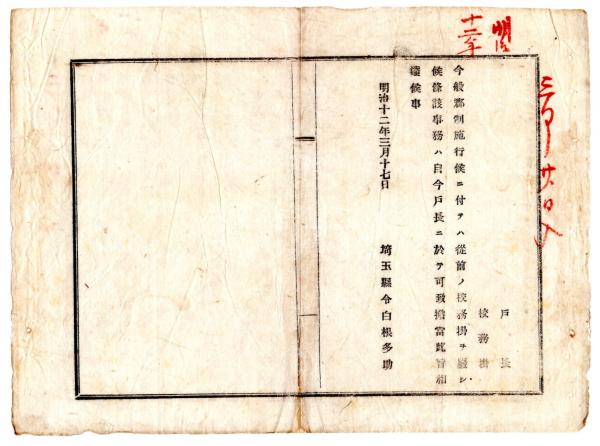 明治
十二年
三月廿日入
戸長
校務掛
今般郡制施行候ニ付テハ従前ノ校務掛ヲ廢シ
候條該事務ハ自今戸長ニ於テ可致擔當此旨相
達候事
明治十二年三月十七日
埼玉縣令白根多助